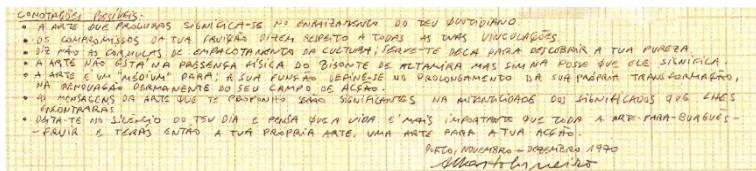 CONOTAÇÕES POSSÍVEIS:
• A ARTE QUE PROCURAS SIGNIFICA-SE NO ENRAIZAMENTO DO TEU QUOTIDIANO.
• OS COMPROMISSOS DA TUA FRUIÇÃO DIZEM RESPEITO A TODAS AS TUAS VINCULAÇÕES.
• DIZ NÃO ÀS FÓRMULAS DE EMPACOTAMENTO DA CULTURA; SERVE-TE DELA PARA DESCOBRIR A TUA PUREZA.
• A ARTE NÃO ESTÁ NA PRESENÇA FÍSICA DO BISONTE DE ALTAMIRA MAS SIM NA POSSE QUE ELE SIGNIFICA.
• A ARTE É UM "MEDIUM" PARA; A SUA FUNÇÃO DEFINE-SE NO PROLONGAMENTO DA SUA PRÓPRIA TRANSFORMAÇÃO,
NA RENOVAÇÃO PERMANENTE DO SEU CAMPO DE ACÇÃO.
• AS MENSAGENS DA ARTE QUE TE PROPONHO SERÃO SIGNIFICANTES NA AUTENTICIDADE DOS SIGNIFICADOS QUE LHES
ENCONTRARAS.
• DEITA-TE NO SILÊNCIO DO TEU DIA E PENSA QUE A VIDA É MAIS IMPORTANTE QUE TODA A ARTE-PARA-BURGUÊS-
-FRUIR E TERÁS ENTÃO A TUA PRÓPRIA ARTE, UMA ARTE PARA A TUA ACÇÃO.
PORTO, NOVEMBRO – DEZEMBRO 1970
Alberto Carneiro